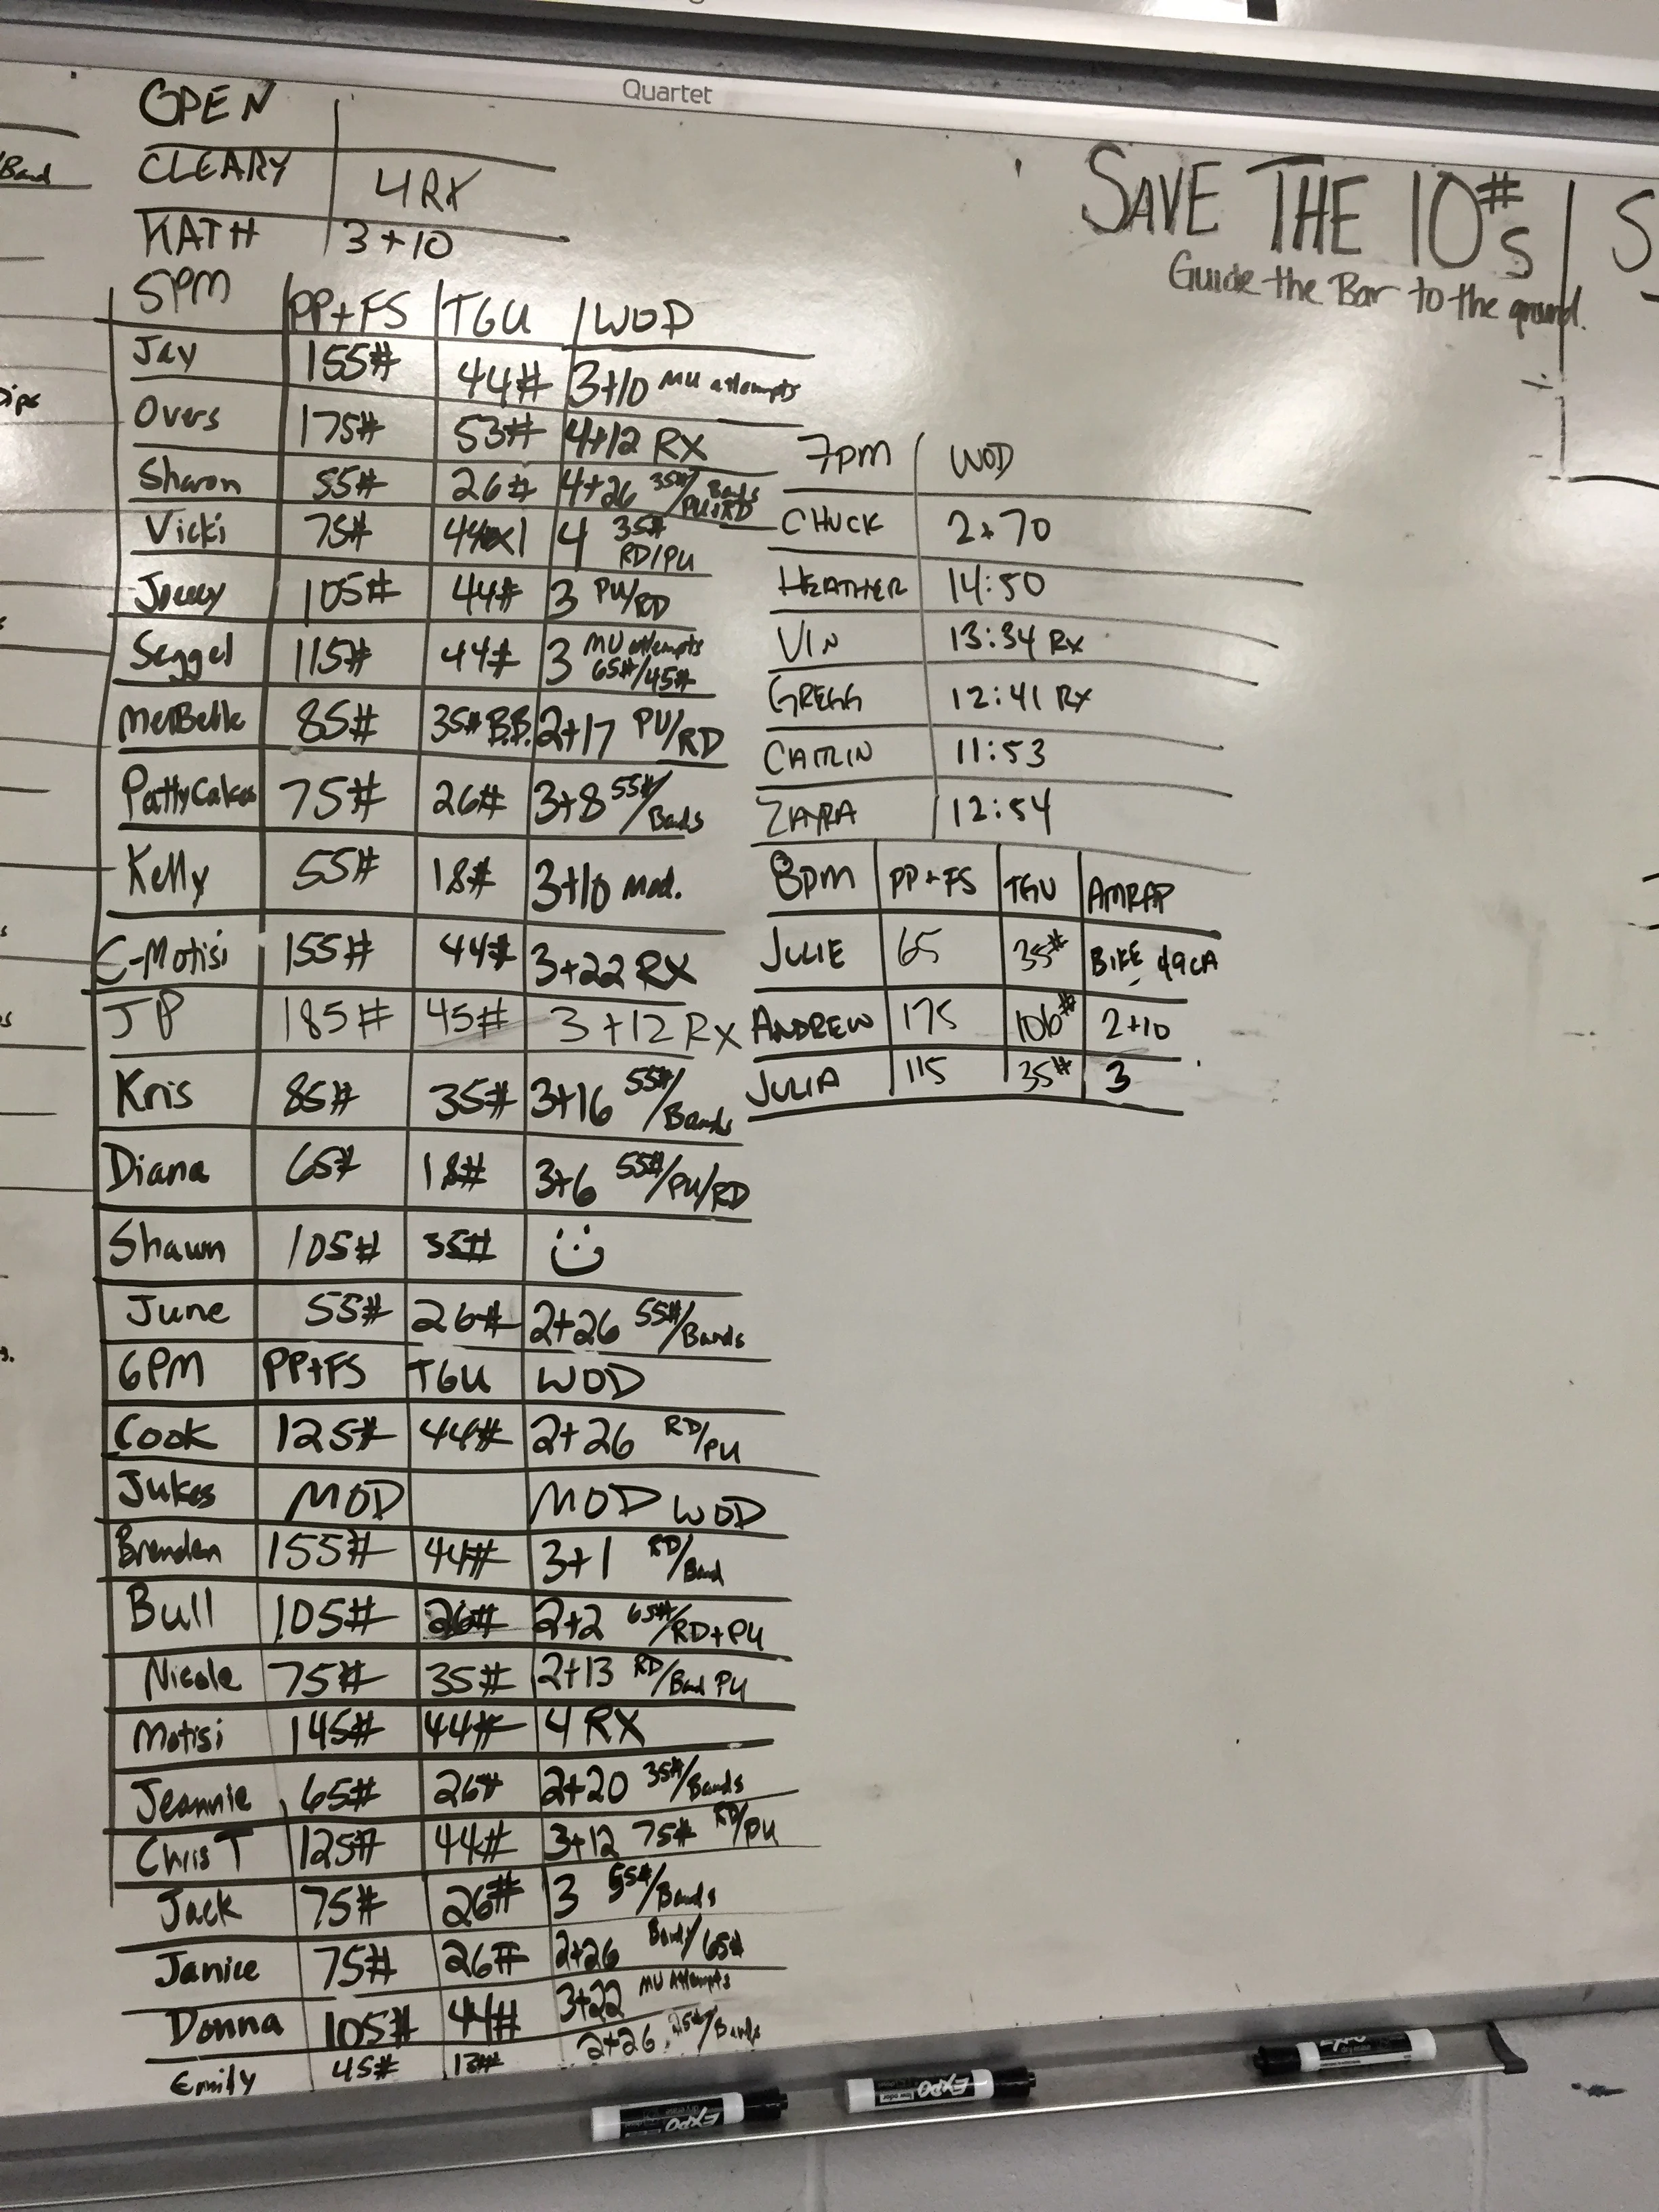 Quartet
OPEN
CLEARY 4 RX
KATH 3+10
5PM PP+FS TGU WOD
Jay 155# 44# 3+10 MU attempts
Overs 175# 53# 4+12 RX
Sharon 55# 26# 4+26 35#/Bands PU+RD
Vicki 75# 44#x1 4 35# RD/PU
105# 44# 3 PU/RD
Seggel 115# 44# 3 MU attempts 65#/45#
MelBelle 85# 35# B.B. 2+17 PU/RD
PattyCakes 75# 26# 3+8 55#/Bands
Kelly 55# 18# 3+10 mod.
C-Motisi 155# 44# 3+22 RX
JP 185# 45# 3+12 Rx
Kris 85# 35# 3+16 55#/Bands
Diana 65# 18# 3+6 55#/PU/RD
Shawn 105# 35#
June 55# 26# 2+26 55#/Bands
6PM PP+FS TGU WOD
Cook 125# 44# 2+26 RD/PU
Jukes MOD MOD WOD
Brendan 155# 44# 3+1 RD/Band
Bull 105# 26# 2+2 65#/RD+PU
Nicole 75# 35# 2+13 RD/Band PU
Motisi 145# 44# 4 RX
Jeannie 65# 26# 2+20 35#/Bands
Chris T 125# 44# 3+12 75# RD/PU
Jack 75# 26# 3 55#/Bands
Janice 75# 26# 2+26 Bands/65#
Donna 105# 44# 3+22 MU Attempts
Emily 45# 2+26 /Bands
SAVE THE 10#s
Guide the Bar to the ground.
7pm WOD
CHUCK 2+70
HEATHER 14:50
VIN 13:34 Rx
GREGG 12:41 Rx
CAITLIN 11:53
ZAYRA 12:54
8pm PP+FS TGU AMRAP
JULIE 65 35# BIKE 49CA
ANDREW 175 106# 2+10
JULIA 115 35# 3
Band
Dips
EXPO
EXPO
EXPO